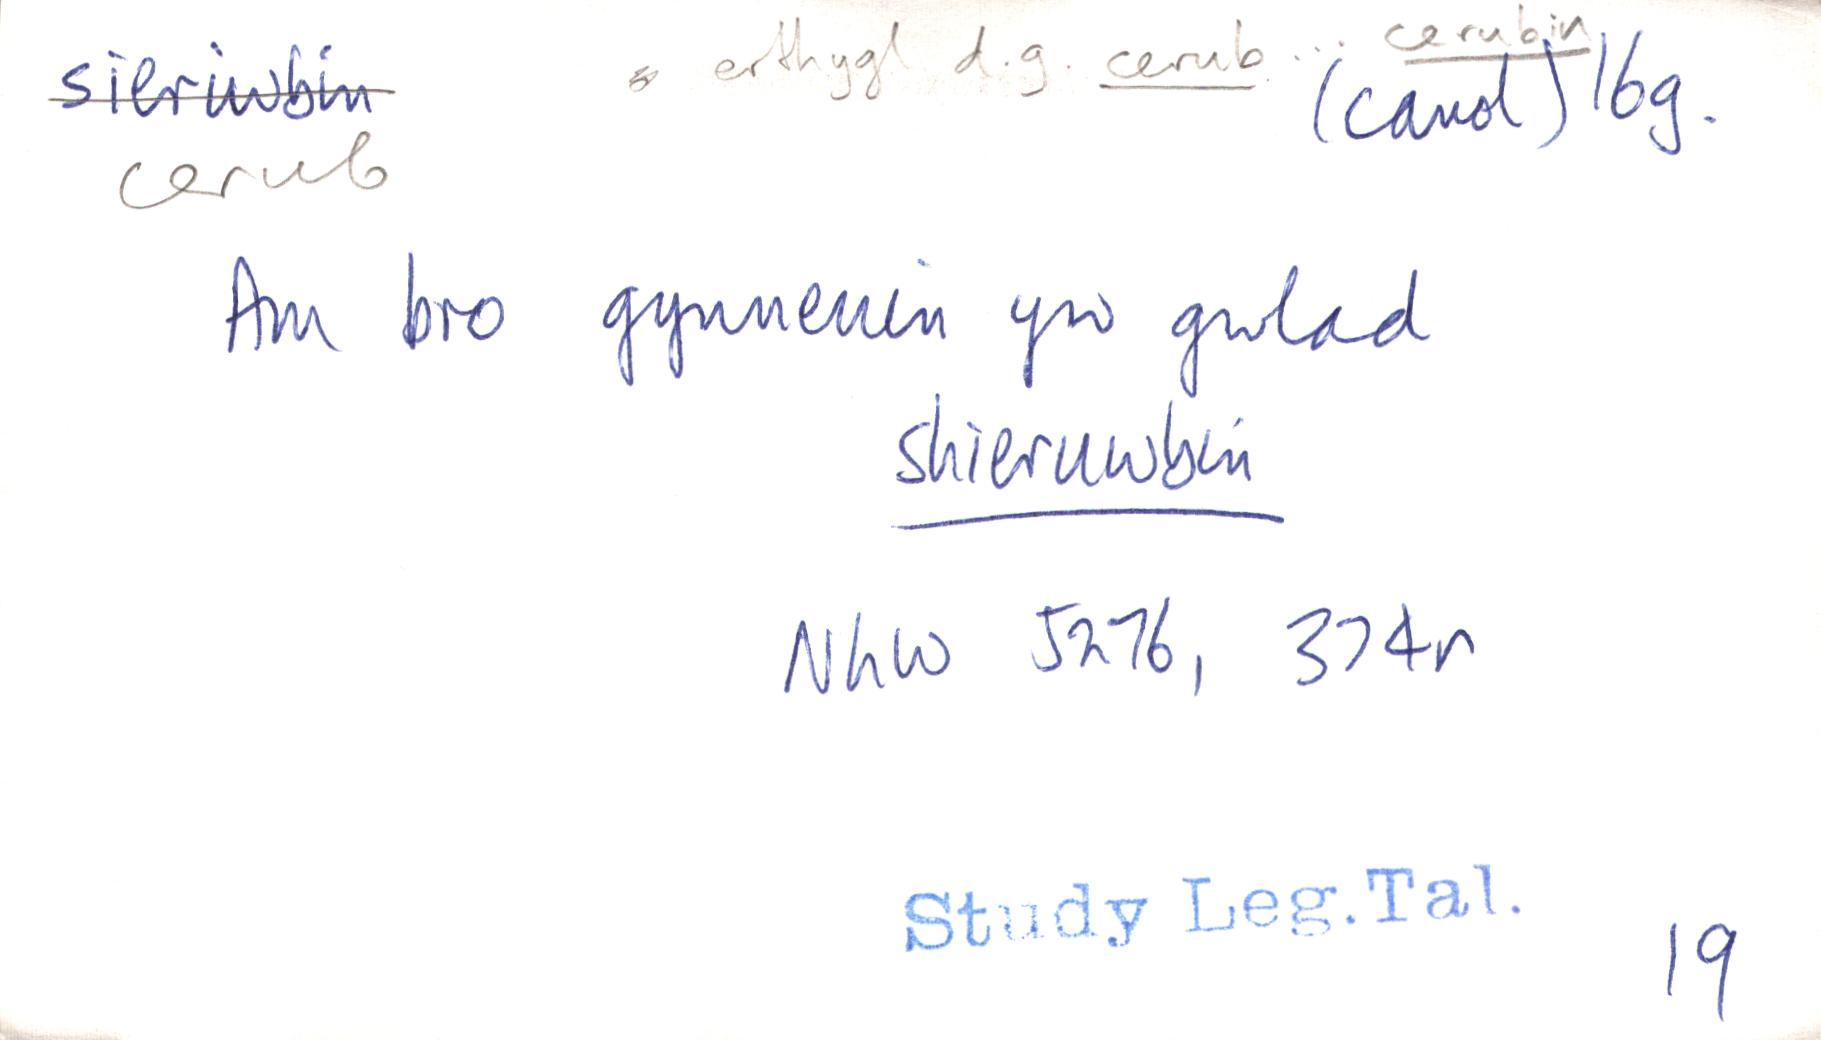 erthygl d.g. cerub ... cerubin
sieriwbin (canol) 16g.
cerub
Am bro gynnenin yw gwlad
shieruwbin
NLW 5276, 374r
Study Leg.Tal.
19